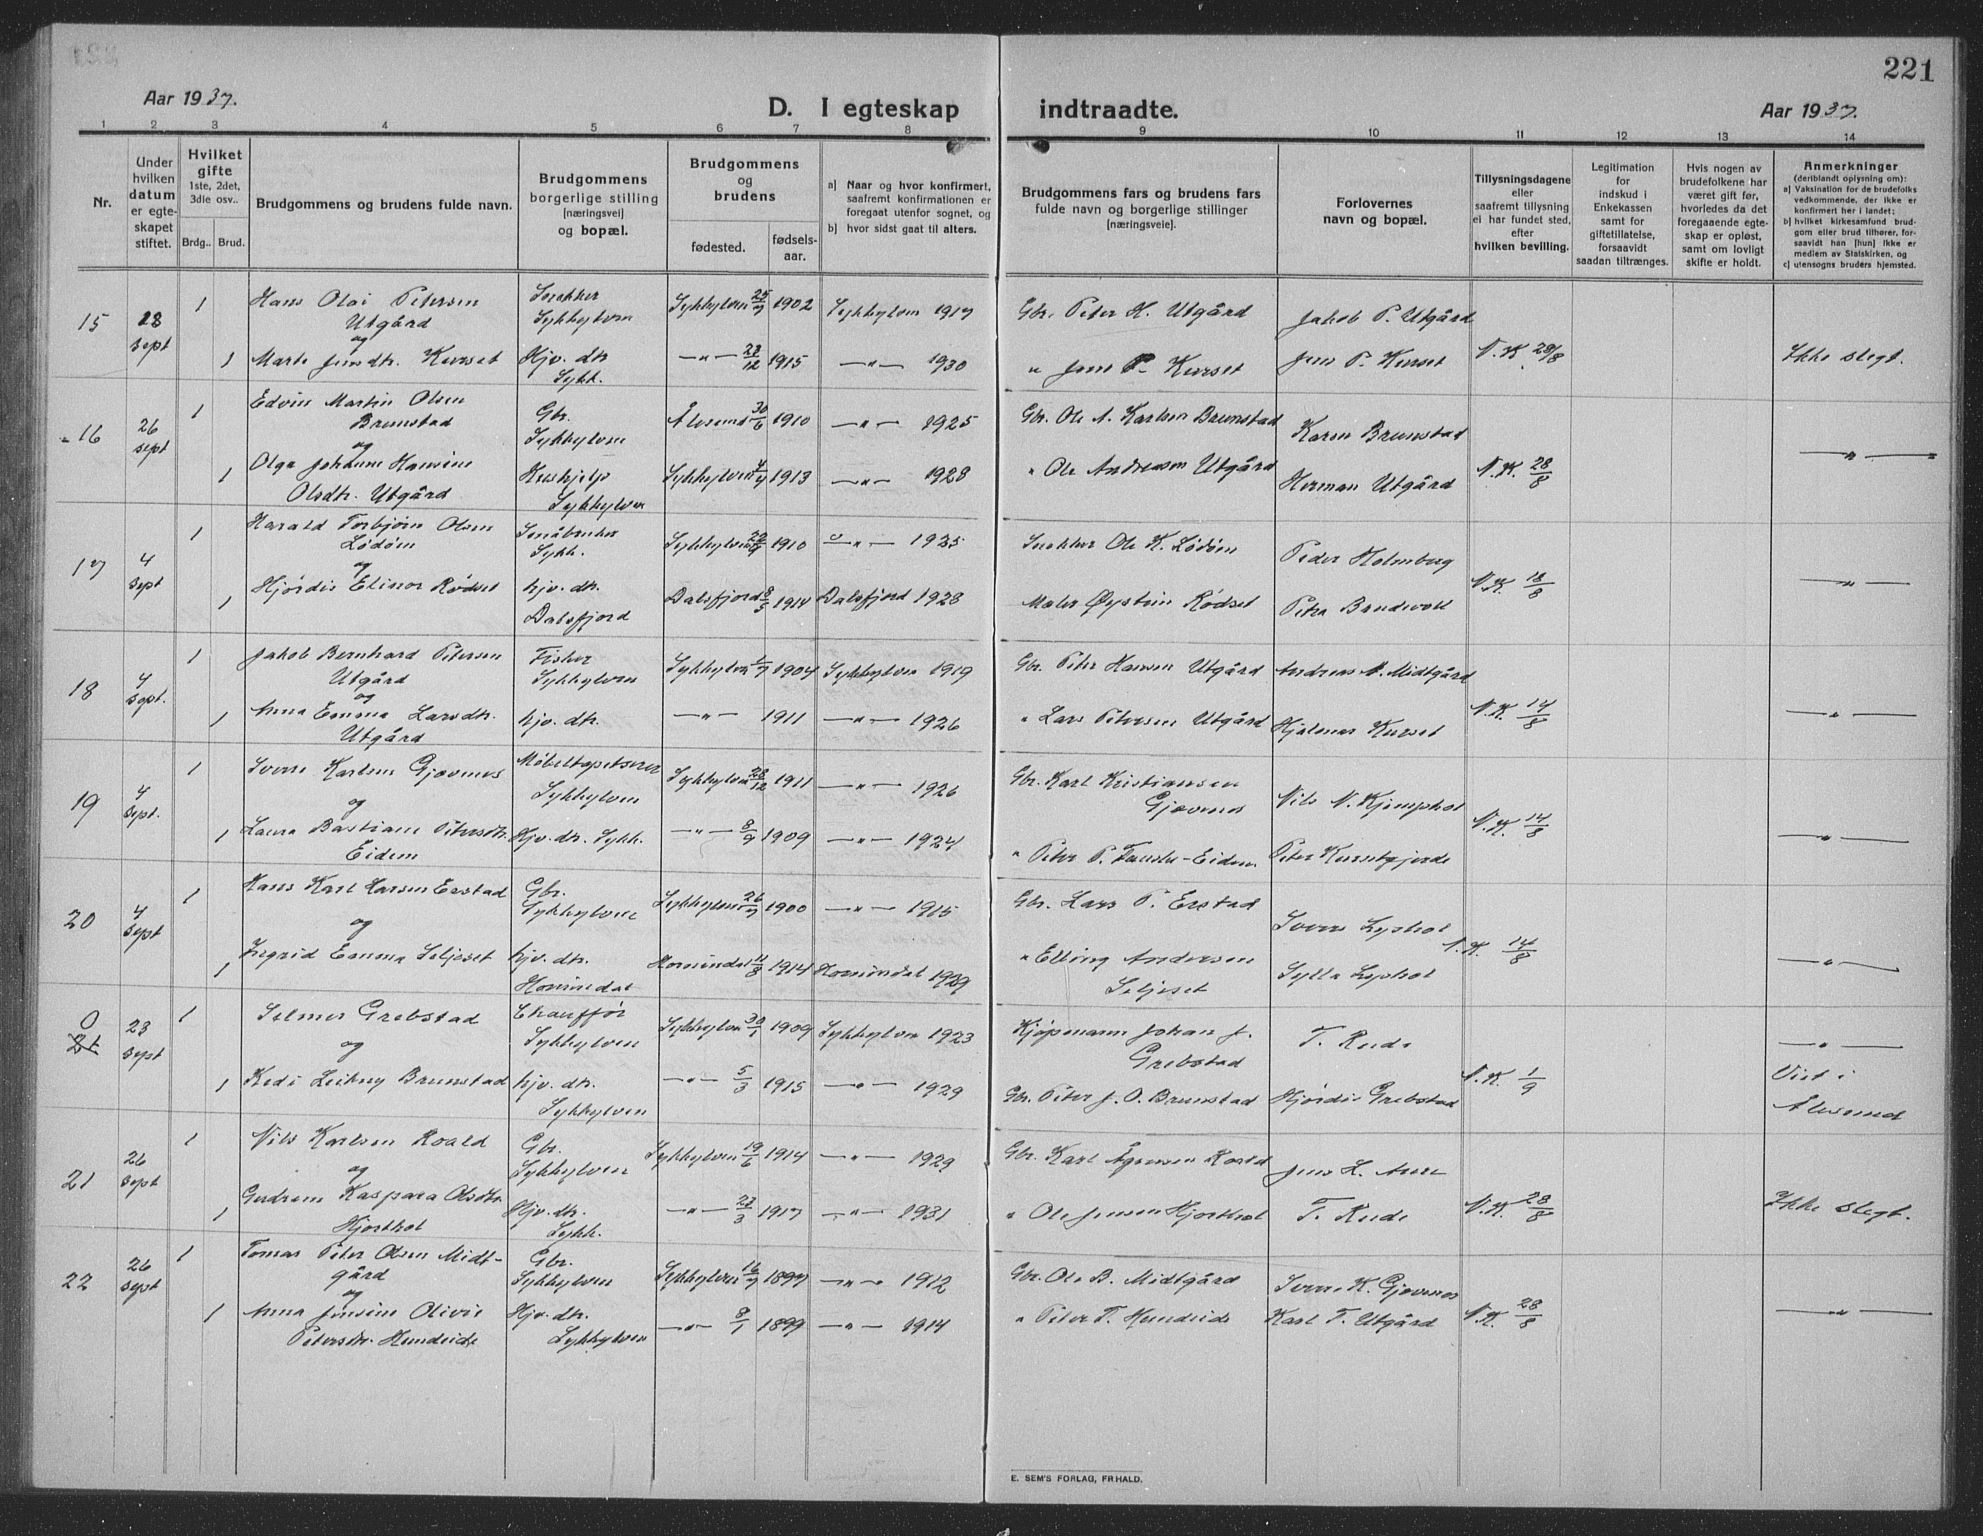 221
Aar 1937.
D. I egteskap indtraadte.
Aar 1937.
1 2 3 4 5 6 7 8 9 10 11 12 13 14
Nr.
Under
hvilken
datum
er egte-
skapet
stiftet.
Hvilket
gifte
1ste, 2det,
3dle osv..
Brdg.. Brud.
Brudgommens og brudens fulde navn.
Brudgommens
borgerlige stilling
[næringsvei]
og bopæl.
Brudgommens
og
brudens
fødested.
fødsels-
aar.
a] Naar og hvor konfirmert,
saafremt konfirmationen er
foregaat utenfor sognet, og
b] hvor sidst gaat til alters.
Brudgommens fars og brudens fars
fulde navn og borgerlige stillinger
[næringsveie].
Forlovernes
navn og bopæl.
Tillysningsdagene
eller
saafremt tillysning
ei har fundet sted,
efter
hvilken bevilling.
Legitimation
for
indskud i
Enkekassen
samt for
giftetillatelse,
forsaavidt
saadan tiltrænges.
Hvis nogen av
brudefolkene har
været gift før,
hvorledes da det
foregaaende egte-
skap er opløst,
samt om lovligt
skifte er holdt.
Anmerkninger
(deriblandt oplysning om):
a) Vaksination for de brudefolks
vedkommende, der ikke er
konfirmert her i landet;
b) hvilket kirkesamfund brud-
gom eller brud tilhører, for-
saavidt han [hun] ikke er
medlem av Statskirken, og
c) utensogns bruders hjemsted.
15 18 sept 1 Hans Olai Petersen Utgård Snekker Sykkylven Sykkylven 25/7 1902 Sykkylven 1917 Gbr. Peter H. Utgård Jakob P. Utgård
og
1 Marte Jensdtr. Kurset Hjv. dtr. Sykk. —"— 28/12 1915 —"— 1930 " Jens P. Kurset Jens P. Kurset N.K 28/8 Ikke slegt.
16 26 sept 1 Edvin Martin Olsen Brunstad Gbr. Sykkylven Ålesund 30/6 1910 —"— 1925 Gbr. Ole A. Karlsen Brunstad Karen Brunstad
og
1 Olga Johanne Hansine Olsdtr. Utgård Sykkylven Sykkylven 4/7 1913 —"— 1928 " Ole Andreasen Utgård Herman Utgård N.K. 28/8 —"—
17 4 sept 1 Harald Torbjørn Olsen Lødøm Småbruker Sykk. Sykkylven 1910 —"— 1925 Snekker Ole K. Lødøm Peder Holmberg
og
1 Hjørdis Elinor Rødset hjv. dtr. Dalsfjord Dalsfjord 8/5 1914 Dalsfjord 1928 Maler Øystein Rødset Petra Brudevoll N.K. 18/8 —"—
18 4 sept. 1 Jakob Bernhard Petersen Utgård Fisker Sykkylven Sykkylven 1/7 1904 Sykkylven 1919 Gbr. Peter Hansen Utgård Andreas M. Midtgård
og
1 Anna Emma Larsdtr. Utgård hjv. dtr. —"— 1911 —"— 1926 " Lars Petersen Utgård Hjalmar Kurset N.K. 14/8 —"—
19 4 sept. 1 Sverre Karlsen Gjævenes Møbeltapetserer Sykkylven Sykkylven 28/12 1911 —"— 1926 Gbr. Karl Kristiansen Gjævenes Nils N. Kjemphol
og
1 Laura Bastiane Petersdtr. Eidem Hjv. dtr. Sykk. —"— 8/9 1909 —"— 1924 " Peter P. Tandstr-Eidem Peter N.K. 14/8 —"—
20 4 sept 1 Hans Karl Larsen Erstad Gbr. Sykkylven Sykkylven 26/7 1900 —"— 1915 Gbr. Lars P. Erstad Sverre Lyshol
og
1 Ingrid Emma Seljeset hjv. dtr. Hornindal Hornindal 11/8 1914 Hornindal 1929 " Elling Andersen Seljeset Sylla Lyshol N.K. 14/8 —"—
0 21 23 sept 1 Selmer Grebstad Chauffør Sykkylven Sykkylven 30/1 1909 Sykkylven 1923 Kjøpmann Johan J. Grebstad T. Rude —"—
og
1 Kedi Leikny Brunstad hjv. dtr. Sykkylven —"— 5/3 1915 —"— 1929 Gbr. Peter J. O. Brunstad Hjørdis Grebstad N.K. 1/9 Viet i Ålesund
21 26 sept 1 Nils Karlsen Roald Gbr. Sykkylven Sykkylven 19/6 1914 —"— 1929 Gbr. Karl Roald Jens L. Aure
og
1 Gudrun Kaspara Olsdtr. Hjorthol Hjv. dtr. Sykk. —"— 23/3 1917 —"— 1931 " Ole Jensen Hjorthol T. Rude N.K. 28/8 Ikke slegt.
22 26 sept 1 Tomas Peter Olsen Midt- gård Gbr. Sykkylven Sykkylven 16/7 1897 —"— 1912 Gbr. Ole B. Midtgård Sverre K. Gjævenes
og
1 Anna Jensine Olivie Petersdtr. Hundeide Hjv. dtr. Sykkylven —"— 8/1 1899 —"— 1914 " Peter T. Hundeide Karl T. Utgård N.K. 28/8 —"—
E. SEM'S FORLAG, FR.HALD.